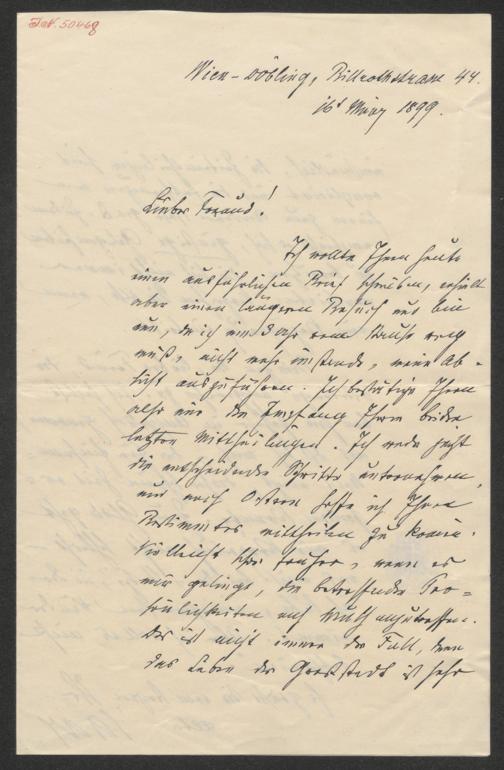 I.N. 50468
Wien-Döbling, Billrothstrasse 44.
16t März 1899.
Lieber Freund!
Ich wollte Ihnen heute
einen ausführlichen Brief schreiben, erhielt
aber einen längern Besuch und bin
nun, da ich um 3 Uhr vom Hause weg
muß, nicht mehr imstande, meine Ab-
sicht auszuführen. Ich bestätige Ihnen
also nur den Empfang Ihrer beiden
letzten Mittheilungen. Ich werde jetzt
die entscheidenden Schritte unternehmen,
und nach Ostern hoffe ich Ihnen
Bestimmtes mittheilen zu können.
Vielleicht schon früher, wenn es
mir gelingt, die betreffenden Per-
sönlichkeiten auf anzutreffen.
Das ist nicht immer der Fall, denn
das Leben der Großstadt ist sehr